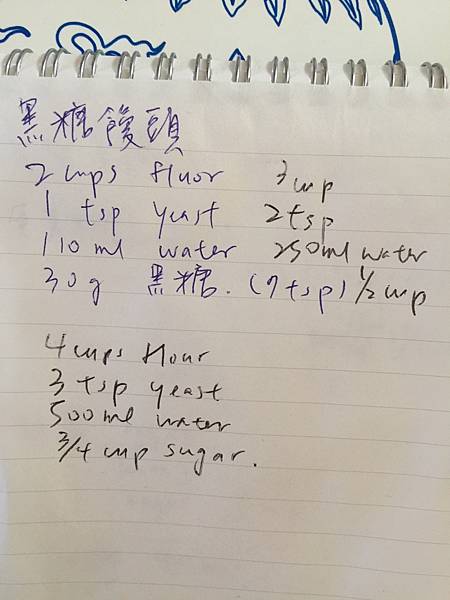 黑糖饅頭
2 cups fluor 3 cup
1 tsp yeast 2 tsp
110 ml water 250ml water
30g 黑糖. (7tsp) 1/2 cup
4 cups flour
3 tsp yeast
500ml water
3/4 cup sugar.